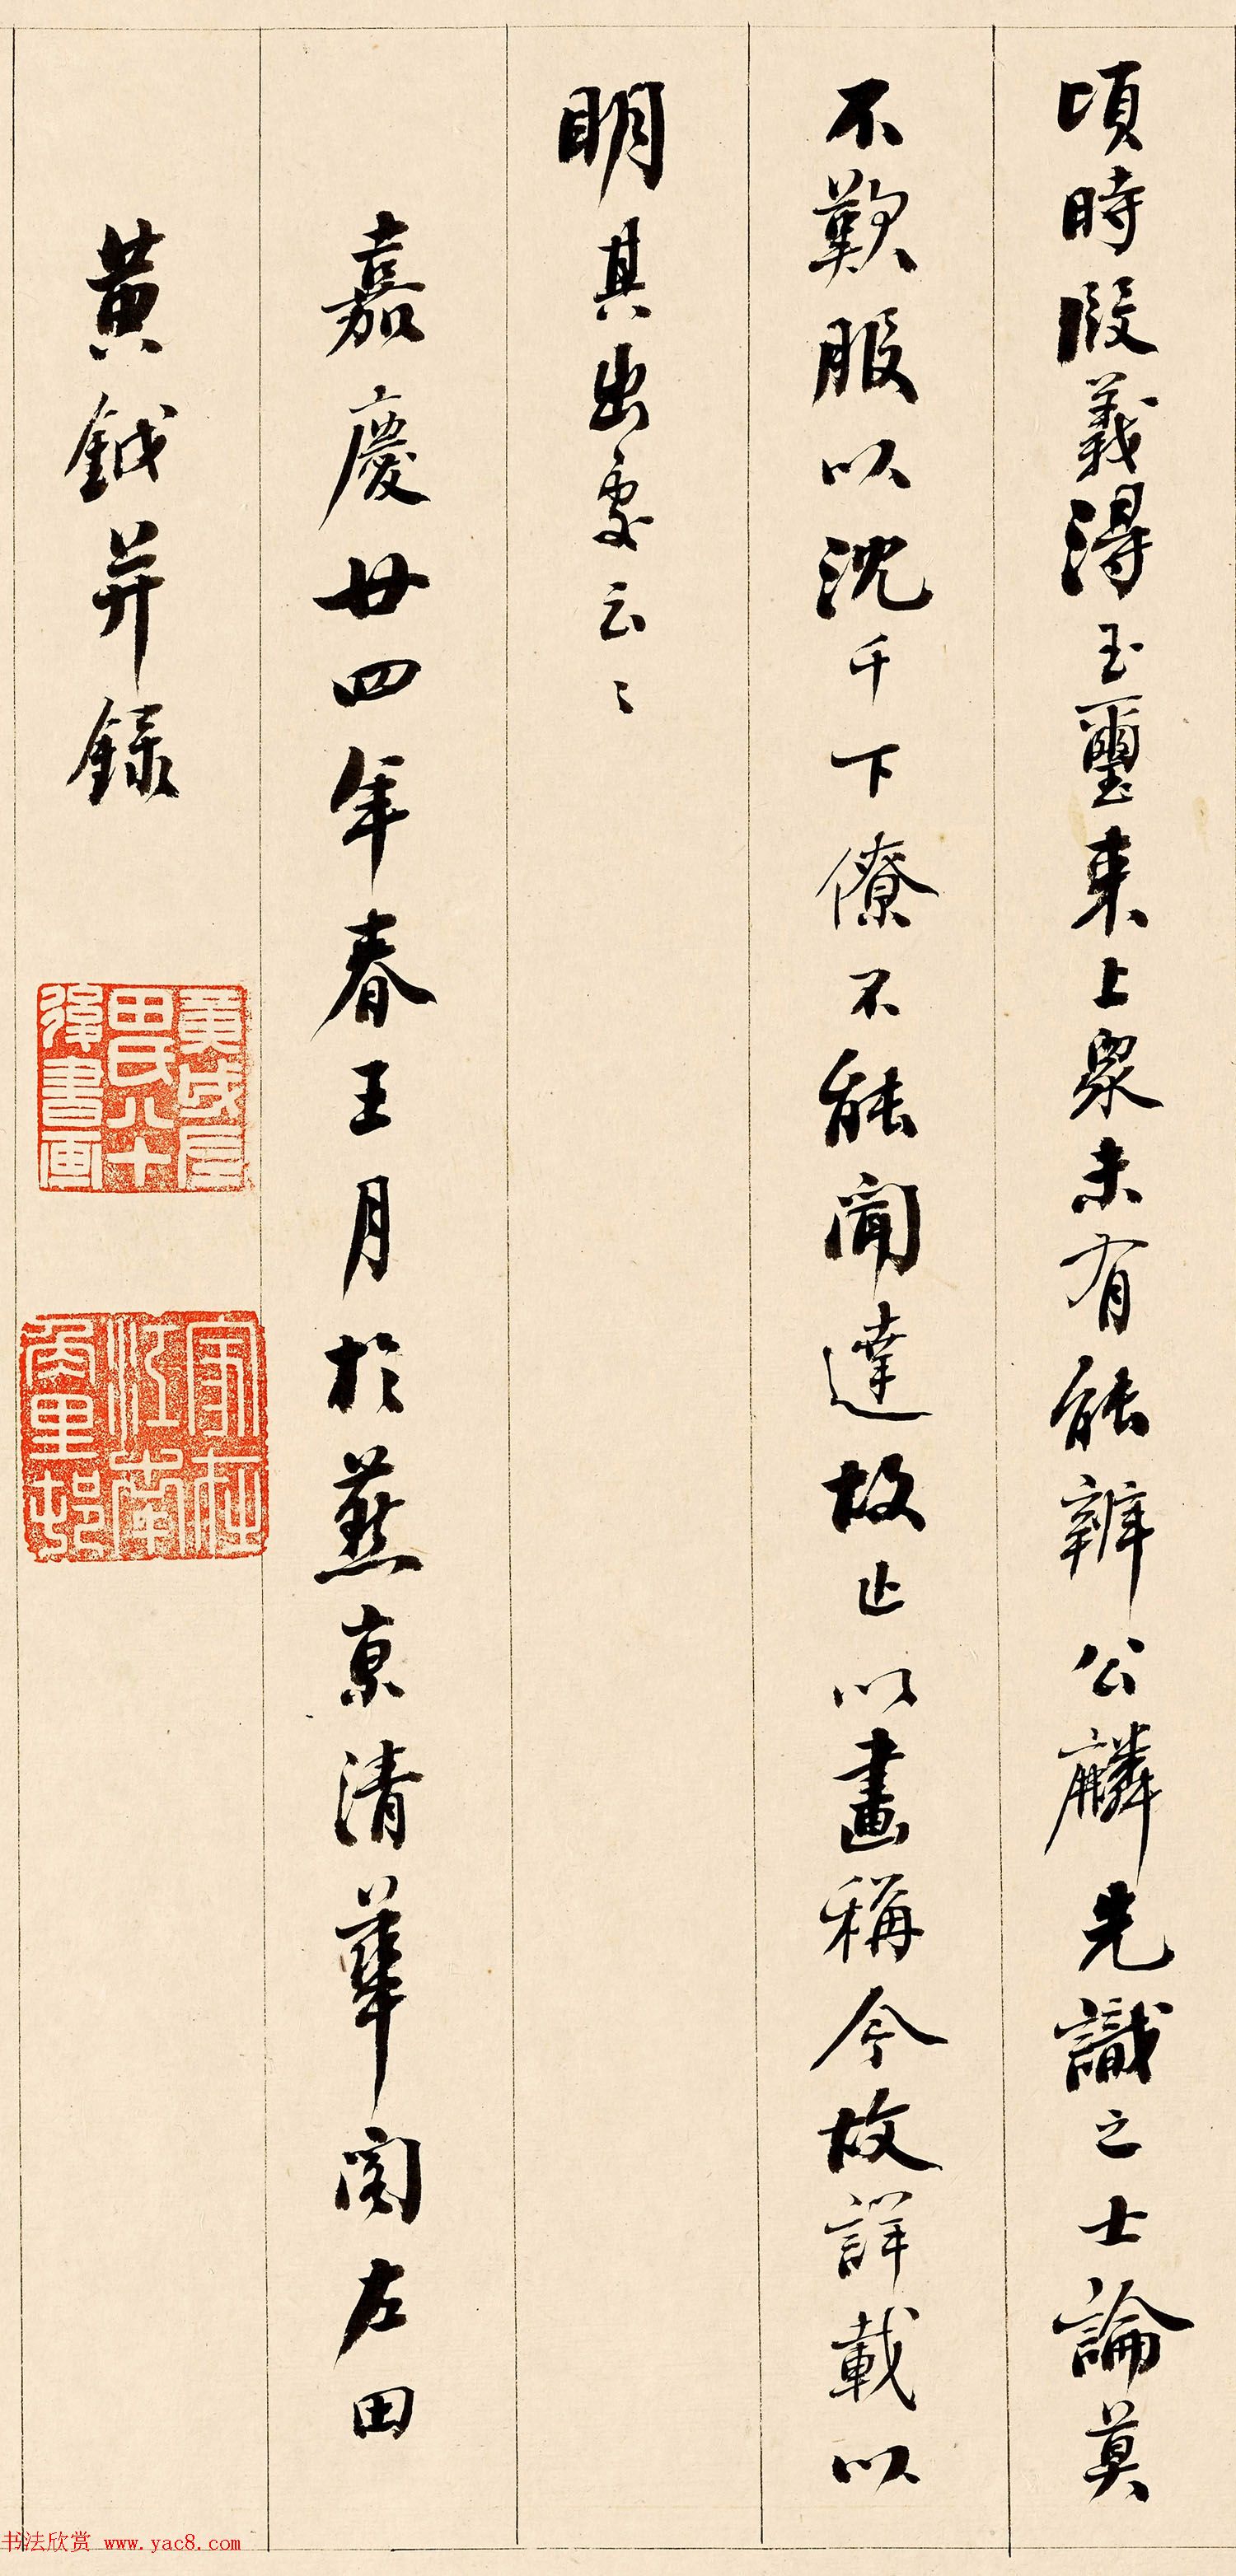 頃時段義得玉璽來上衆未有能辨公麟先識之士論莫
不歎服以沈于下僚不能聞達故止以畫稱今故詳載以
明其出處云〻
嘉慶廿四年春王月於燕京清華閣左田
黃鉞并錄
田氏八十
書画
家在
江南
里邨
书法欣赏 www.yac8.com